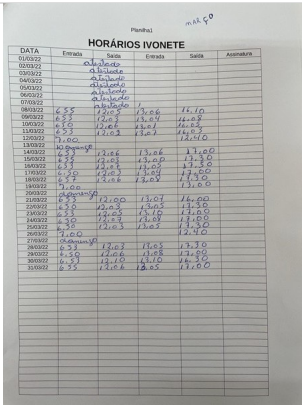 MARÇO
Planilha1
HORÁRIOS IVONETE
DATA Entrada Saída Entrada Saída Assinatura
01/03/22 atestado
02/03/22 atestado
03/03/22 atestado
04/03/22 atestado
05/03/22 atestado
06/03/22 atestado
07/03/22 atestado
08/03/22 6:55 12:05 13:06 16:10
09/03/22 6:53 12:03 13:04 16:08
10/03/22 6:50 12:06 13:07 16:05
11/03/22 6:53 12:08 13:07 16:05
12/03/22 7:00 12:40
13/03/22 domingo
14/03/22 6:53 12:06 13:06 17:00
15/03/22 6:55 12:03 13:00 17:30
16/03/22 6:53 12:07 13:05 17:30
17/03/22 6:50 12:03 13:04 17:00
18/03/22 6:57 12:06 13:08 17:30
19/03/22 7:00 13:00
20/03/22 domingo
21/03/22 6:53 12:00 13:07 16:00
22/03/22 6:50 12:03 13:05 17:30
23/03/22 6:53 12:05 13:10 17:00
24/03/22 6:50 12:07 13:08 17:00
25/03/22 6:50 12:03 13:05 17:30
26/03/22 7:00 12:40
27/03/22 domingo
28/03/22 6:53 12:03 13:05 17:30
29/03/22 6:50 12:06 13:08 17:00
30/03/22 6:53 12:10 13:10 16:30
31/03/22 6:55 12:06 13:05 17:00